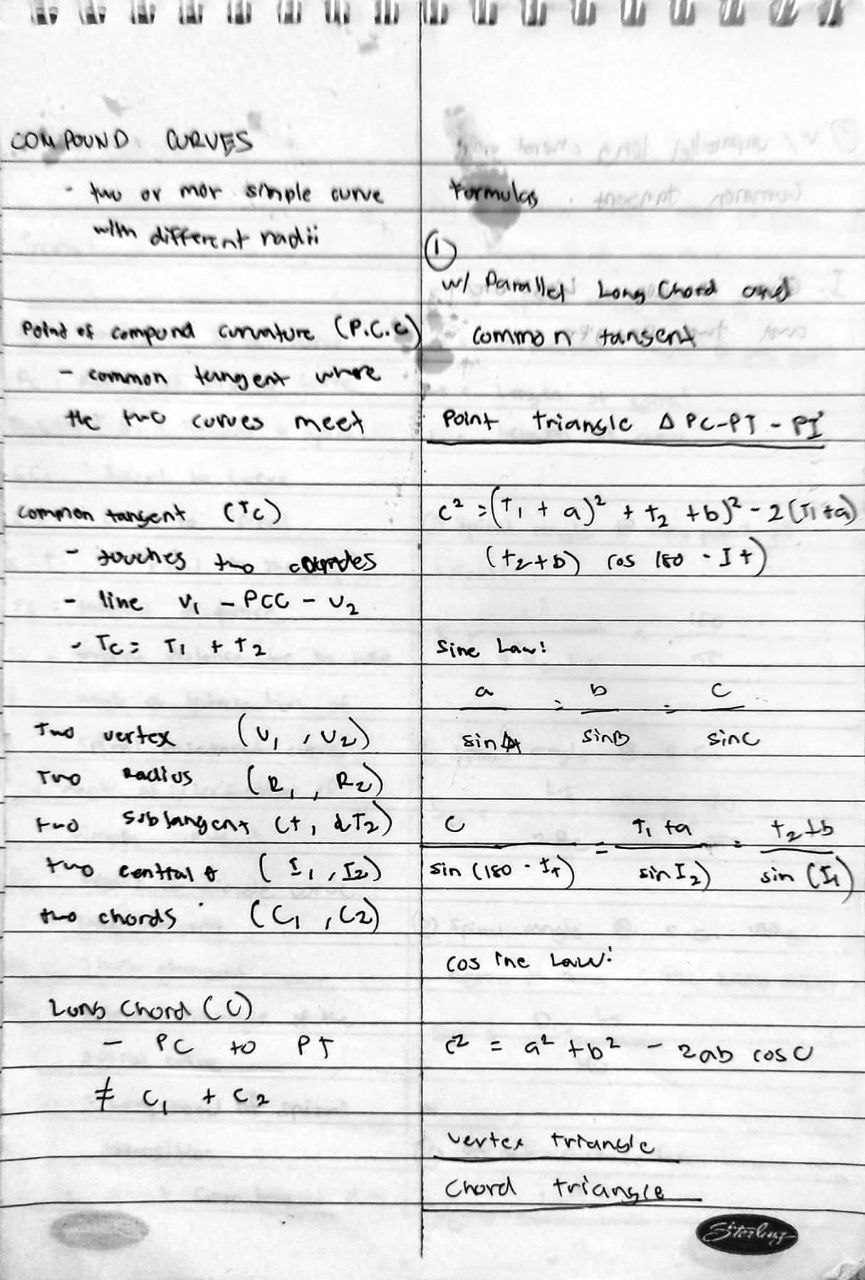 COMPOUND CURVES
- two or mor simple curve
with different radii
Point of compound curvature (P.C.C)
- common tangent where
the two curves meet
common tangent (Tc)
- touches two
- line V1 - PCC - V2
- Tc = T1 + T2
Two vertex (V1, V2)
Two Radius (R1, R2)
two subtangent (t, & T2)
two central θ (I1, I2)
two chords (C1, C2)
Long Chord (C)
- PC to PT
≠ C1 + C2
Formulas
①
w/ Parallel Long Chord and
common tangent
Point triangle Δ PC-PT-PI
c² = (T1 + a)² + t2 + b)² - 2 (T1 + a)
(t2+b) cos 180 - I t)
Sine Law:
a/sinA = b/sinB = c/sinC
C/sin (180 - It) = T1 + a/sin I2) = t2+b/sin (I1
cos ine Law:
c² = a² + b² - 2ab cosC
vertex triangle
Chord triangle
Sterling